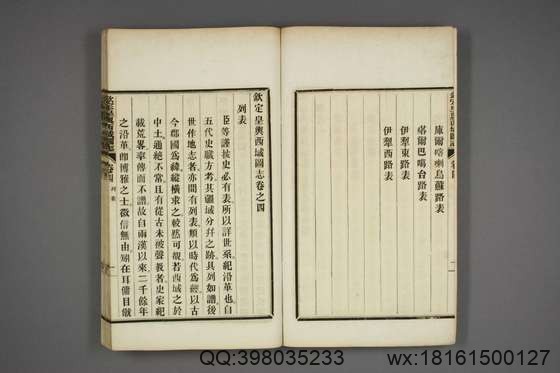 庫爾喀喇烏蘇路表
塔爾巴噶台路表
伊犂東路表
伊犂西路表
欽定皇輿西域圖志卷之四
列表
臣等謹按史必有表所以詳世系紀沿革也自
五代史職方考其疆域分幷之跡具列如譜後
世作地志者亦間有列表類以時代爲經以古
今郡國爲緯縱橫求之較然可覩若西域之於
中土通絶不常且有從古未被聲教者史家紀
載荒畧率傳而不譜故自兩漢以來二千餘年
之沿革卽博雅之士徵信無由矧在耳傭目
卷四
列表
QQ:398035233
wx:18161500127